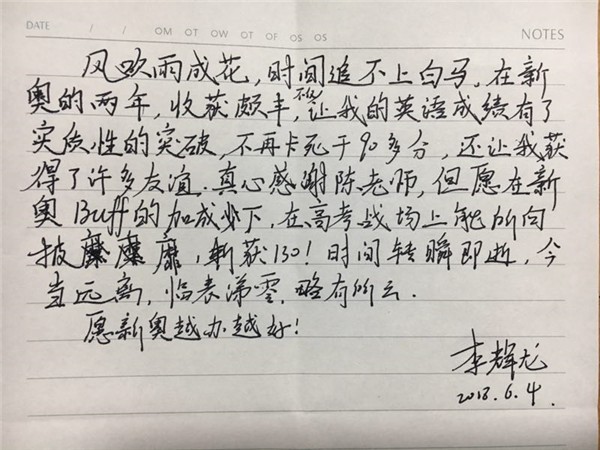 DATE / / OM OT OW OT OF OS OS NOTES
风吹雨成花，时间追不上白马，在新
奥的两年，收获颇丰，不仅让我的英语成绩有了
实质性的突破，不再卡死于90多分，还让我获
得了许多友谊．真心感谢陈老师，但愿在新
奥Buff的加成下，在高考战场上能所向
披靡，斩获130！时间转瞬即逝，今
当远离，临表涕零，略有所云．
愿新奥越办越好！
李辉龙
2018.6.4.